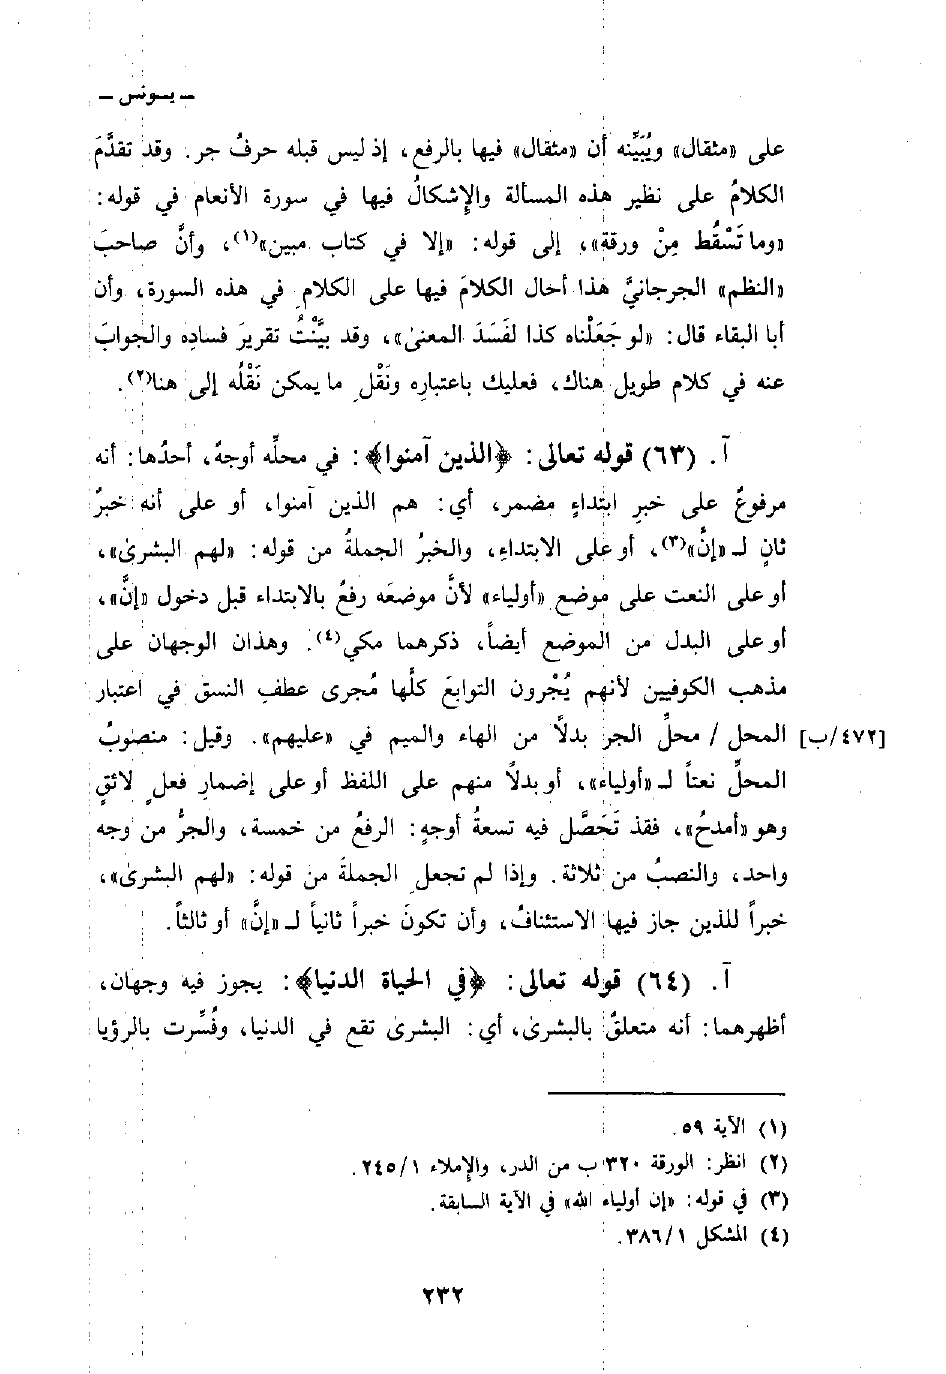 ـ يـونس ـ
على «مثقال» ويُبَيِّنه أن «مثقال» فيها بالرفع، إذ ليس قبله حرفُ جر. وقد تقدَّمَ
الكلامُ على نظير هذه المسألة والإِشكالُ فيها في سورة الأنعام في قوله:
«وما تَسْقُط مِنْ ورقةٍ»، إلى قوله: «إلا في كتاب مبين»(١)، وأنَّ صاحبَ
«النظم» الجرجانيَّ هذا أحال الكلامَ فيها على الكلامِ في هذه السورة، وأن
أبا البقاء قال: «لو جَعَلْناه كذا لفَسَدَ المعنىٰ»، وقد بيَّنْتُ تقريرَ فسادِه والجوابَ
عنه في كلام طويل هناك، فعليك باعتبارِه ونَقْلِ ما يمكن نَقْلُه إلى هنا(٢).
آ. (٦٣) قوله تعالى: ﴿الذين آمنوا﴾: في محلِّه أوجهٌ، أحدُها: أنه
مرفوعٌ على خبرِ ابتداءٍ مضمر، أي: هم الذين آمنوا، أو على أنه خبرٌ
ثانٍ لـ «إنَّ»(٣)، أو على الابتداءِ، والخبرُ الجملةُ من قوله: «لهم البشرىٰ»،
أو على النعت على موضع «أولياء» لأنَّ موضعَه رفعٌ بالابتداء قبل دخول «إنَّ»،
أو على البدل من الموضع أيضاً، ذكرهما مكي(٤). وهذان الوجهان على
مذهب الكوفيين لأنهم يُجْرون التوابعَ كلَّها مُجرى عطفِ النسق في اعتبار
[٤٧٢/ب] المحل / محلِّ الجر بدلاً من الهاء والميم في «عليهم». وقيل: منصوبُ
المحلِّ نعتاً لـ «أولياءَ»، أو بدلاً منهم على اللفظ أو على إضمارِ فعلٍ لائقٍ
وهو «أمدحُ»، فقد تَحَصَّل فيه تسعةُ أوجهٍ: الرفعُ من خمسة، والجرُّ من وجه
واحد، والنصبُ من ثلاثة. وإذا لم تجعلِ الجملةَ من قوله: «لهم البشرىٰ»،
خبراً للذين جاز فيها الاستئنافُ، وأن تكونَ خبراً ثانياً لـ «إنَّ» أو ثالثاً.
آ. (٦٤) قوله تعالى: ﴿في الحياة الدنيا﴾: يجوز فيه وجهان،
أظهرهما: أنه متعلقٌ بالبشرىٰ، أي: البشرىٰ تقع في الدنيا، وفُسِّرت بالرؤيا
(١) الآية ٥٩.
(٢) انظر: الورقة ٣٢٠ب من الدر، والإِملاء ٢٤٥/١.
(٣) في قوله: «إن أولياء الله» في الآية السابقة.
(٤) المشكل ٣٨٦/١.
٢٣٢